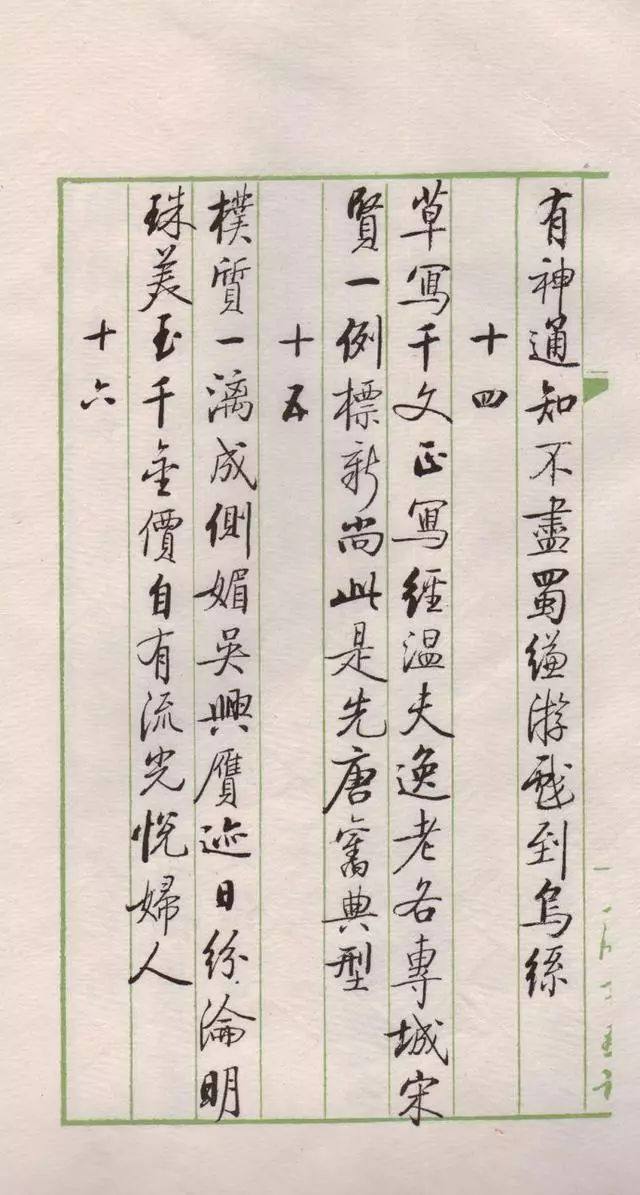 有神通知不盡蜀縑游戲到烏絲
十四
草寫千文正寫經溫夫逸老各專城宋
賢一例標新尚此是先唐舊典型
十五
樸質一漓成側媚吳興贋迹日紛淪明
珠美玉千金價自有流光悅婦人
十六